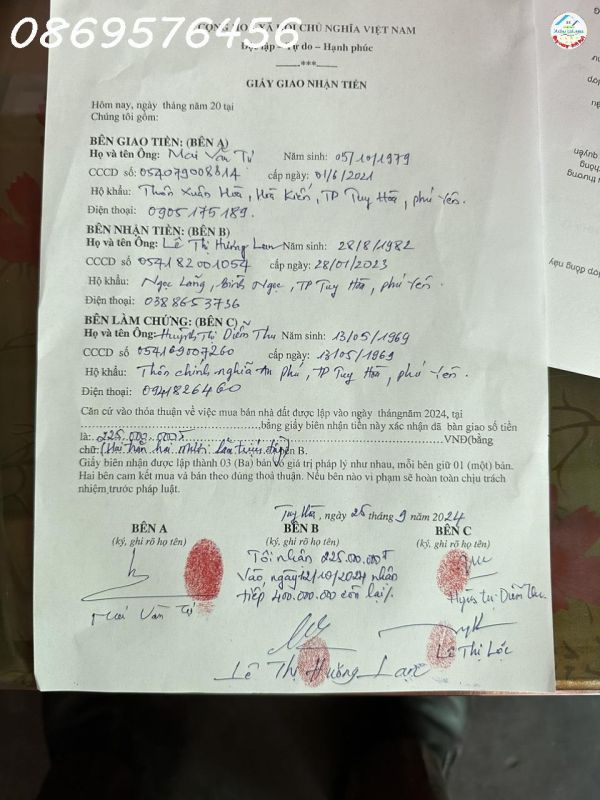 0869576456
CỘNG HÒA XÃ HỘI CHỦ NGHĨA VIỆT NAM
Độc lập – Tự do – Hạnh phúc
-----***-----
GIẤY GIAO NHẬN TIỀN
Hôm nay, ngày tháng năm 20 tại
Chúng tôi gồm:
BÊN GIAO TIỀN: (BÊN A)
Họ và tên Ông: Mai Văn Tự Năm sinh: 05/10/1979
CCCD số: 054079008814 cấp ngày: 01/6/2021
Hộ khẩu: Thôn Xuân Hòa, Hòa Kiến, TP Tuy Hòa, phú yên.
Điện thoại: 0905175189.
BÊN NHẬN TIỀN: (BÊN B)
Họ và tên Ông: Lê Thị Hương Lan Năm sinh: 28/8/1982
CCCD số 054182001054 cấp ngày: 28/01/2023
Hộ khẩu: Ngọc Lãng, Bình Ngọc, TP Tuy Hòa, phú yên.
Điện thoại: 0388653736
BÊN LÀM CHỨNG: (BÊN C)
Họ và tên Ông: Huỳnh Thị Diễm Thu Năm sinh: 13/05/1969
CCCD số 054169007260 cấp ngày: 13/05/1969
Hộ khẩu: Thôn chính nghĩa An Phú, TP Tuy Hòa, phú yên.
Điện thoại: 0941826460
Căn cứ vào thỏa thuận về việc mua bán nhà đất được lập vào ngày thángnăm 2024, tại
bằng giấy biên nhận tiền này xác nhận đã bàn giao số tiền
là: 225.000.000đ VNĐ(bằng
chữ: (Hai trăm hai mươi lăm triệu đồng) ên B.
Giấy biên nhận được lập thành 03 (Ba) bản có giá trị pháp lý như nhau, mỗi bên giữ 01 (một) bản.
Hai bên cam kết mua và bán theo đúng thoả thuận. Nếu bên nào vi phạm sẽ hoàn toàn chịu trách
nhiệm trước pháp luật.
Tuy Hòa, ngày 26 tháng 9 năm 2024
BÊN A BÊN B BÊN C
(ký, ghi rõ họ tên) (ký, ghi rõ họ tên) (ký, ghi rõ họ tên)
Tôi nhận 225.000.000đ
Vào, ngày 12/10/2024 nhận
tiếp 400.000.000 còn lại/.
Mai Văn Tự
Huỳnh Thị Diễm Thu
Lê Thị Lộc
Lê Thị Hương Lan